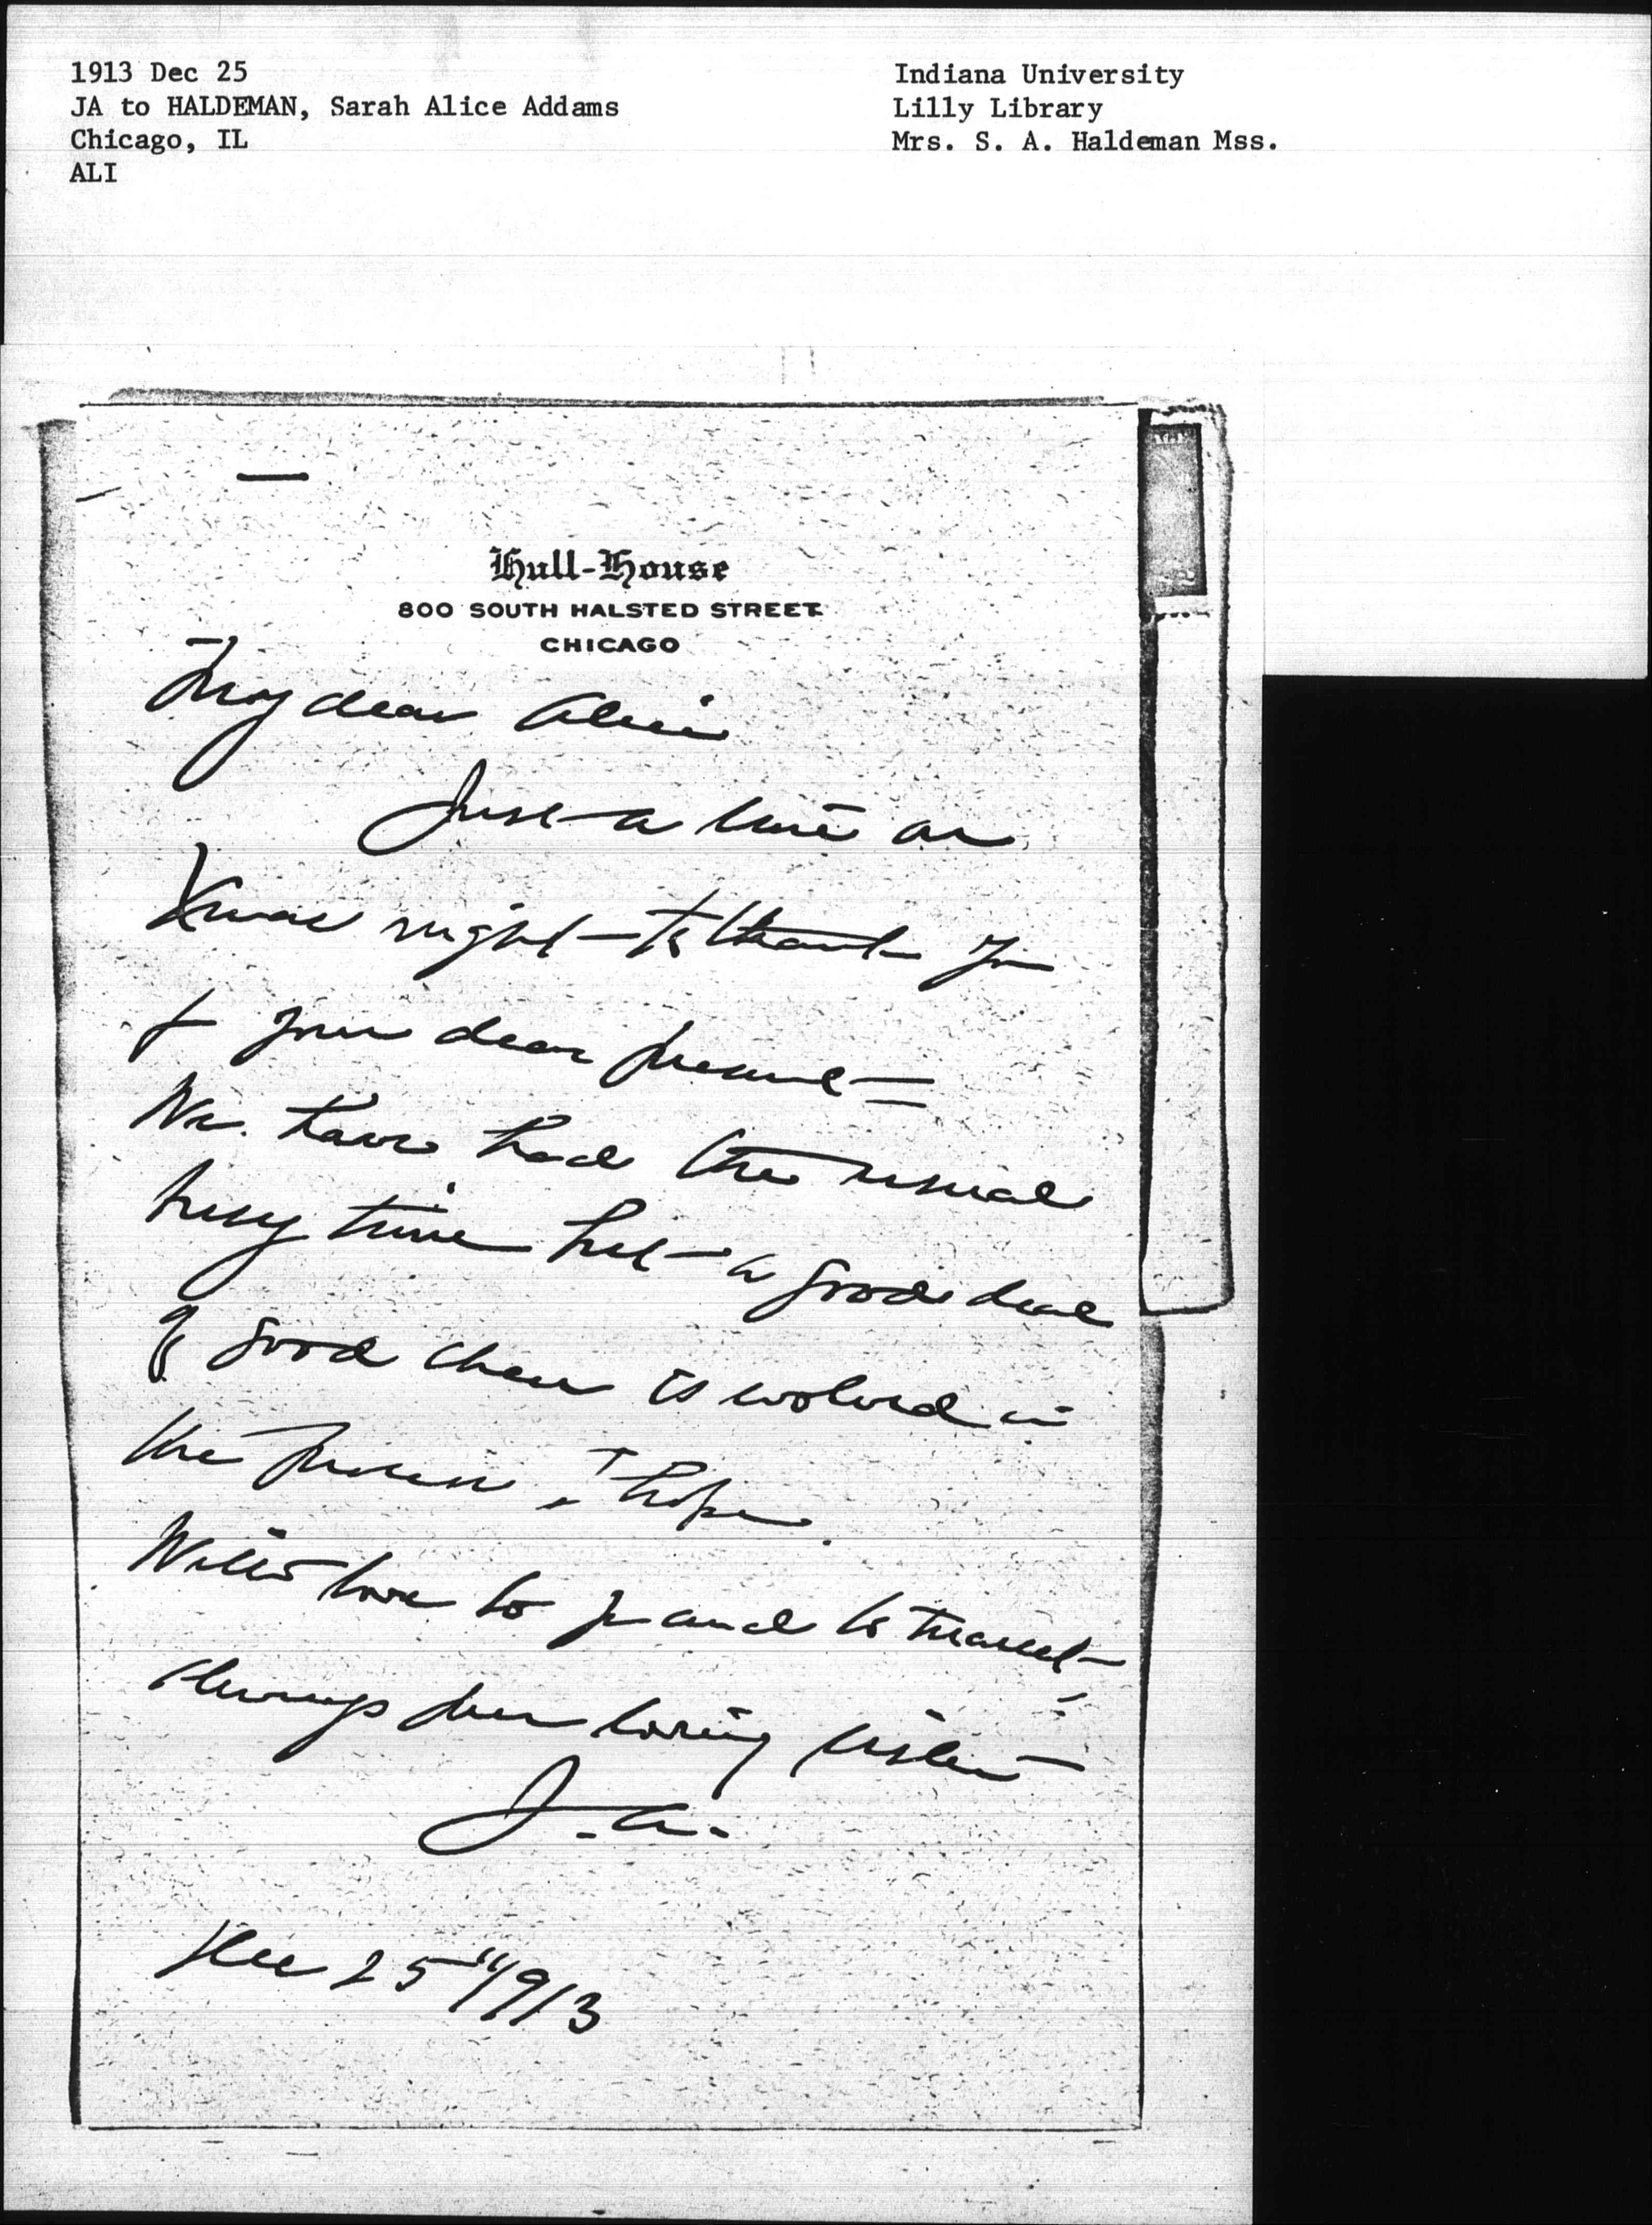 1913 Dec 25
JA to HALDEMAN, Sarah Alice Addams
Chicago, IL
ALI
Indiana University
Lilly Library
Mrs. S. A. Haldeman Mss.
Hull-House
800 SOUTH HALSTED STREET
CHICAGO
My dear Alice
Just a line on
Xmas night to thank you
for your dear present—
We have had the usual
busy time but a good deal
of good cheer is evolved in
the process, I hope.
With love to you and to Marcet,
Always your loving sister
J.A.
Dec 25" 1913